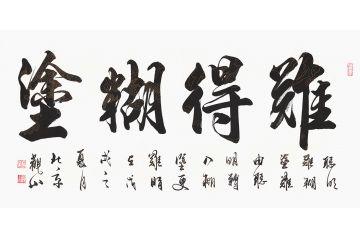 難得糊塗
聪明
難糊
塗難
由聪
明轉
入糊
塗更
難時
在戊
戌之
夏月
北京